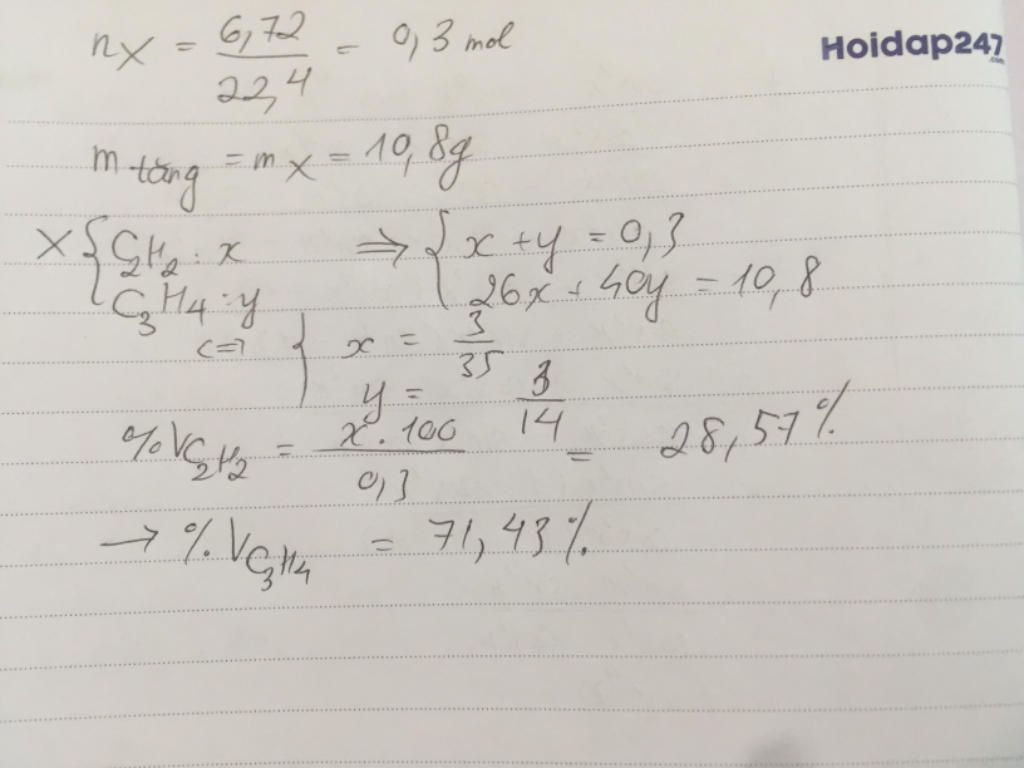 nX = 6,72 / 22,4 = 0,3 mol
Hoidap247.com
m tăng = mX = 10,8g
X { C2H2 : x ⇒ { x + y = 0,3
C3H4 : y 26x + 40y = 10,8
<=> { x = 3/35
y = 3/14
%VC2H2 = x . 100 / 0,3 = 28,57%
→ %VC3H4 = 71,43%